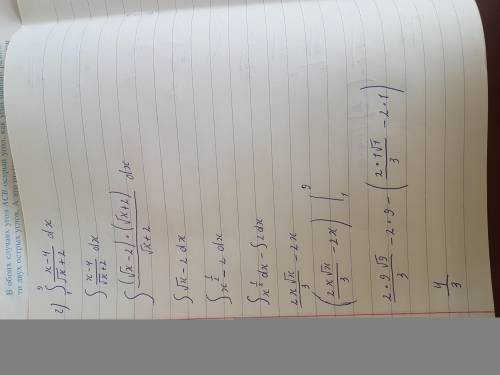 В обоих случаях угол ACB острый угол, как угол
ти двух острых углов. А
2) \int_{1}^{9} \frac{x-4}{\sqrt{x}+2} dx
\int \frac{x-4}{\sqrt{x}+2} dx
\int \frac{(\sqrt{x}-2) \cdot (\sqrt{x}+2)}{\sqrt{x}+2} dx
\int \sqrt{x} - 2 dx
\int x^{\frac{1}{2}} - 2 dx
\int x^{\frac{1}{2}} dx - \int 2 dx
\frac{2x\sqrt{x}}{3} - 2x
\left( \frac{2x\sqrt{x}}{3} - 2x \right) \Big|_{1}^{9}
\frac{2 \cdot 9\sqrt{9}}{3} - 2 \cdot 9 - \left( \frac{2 \cdot 1\sqrt{1}}{3} - 2 \cdot 1 \right)
\frac{4}{3}